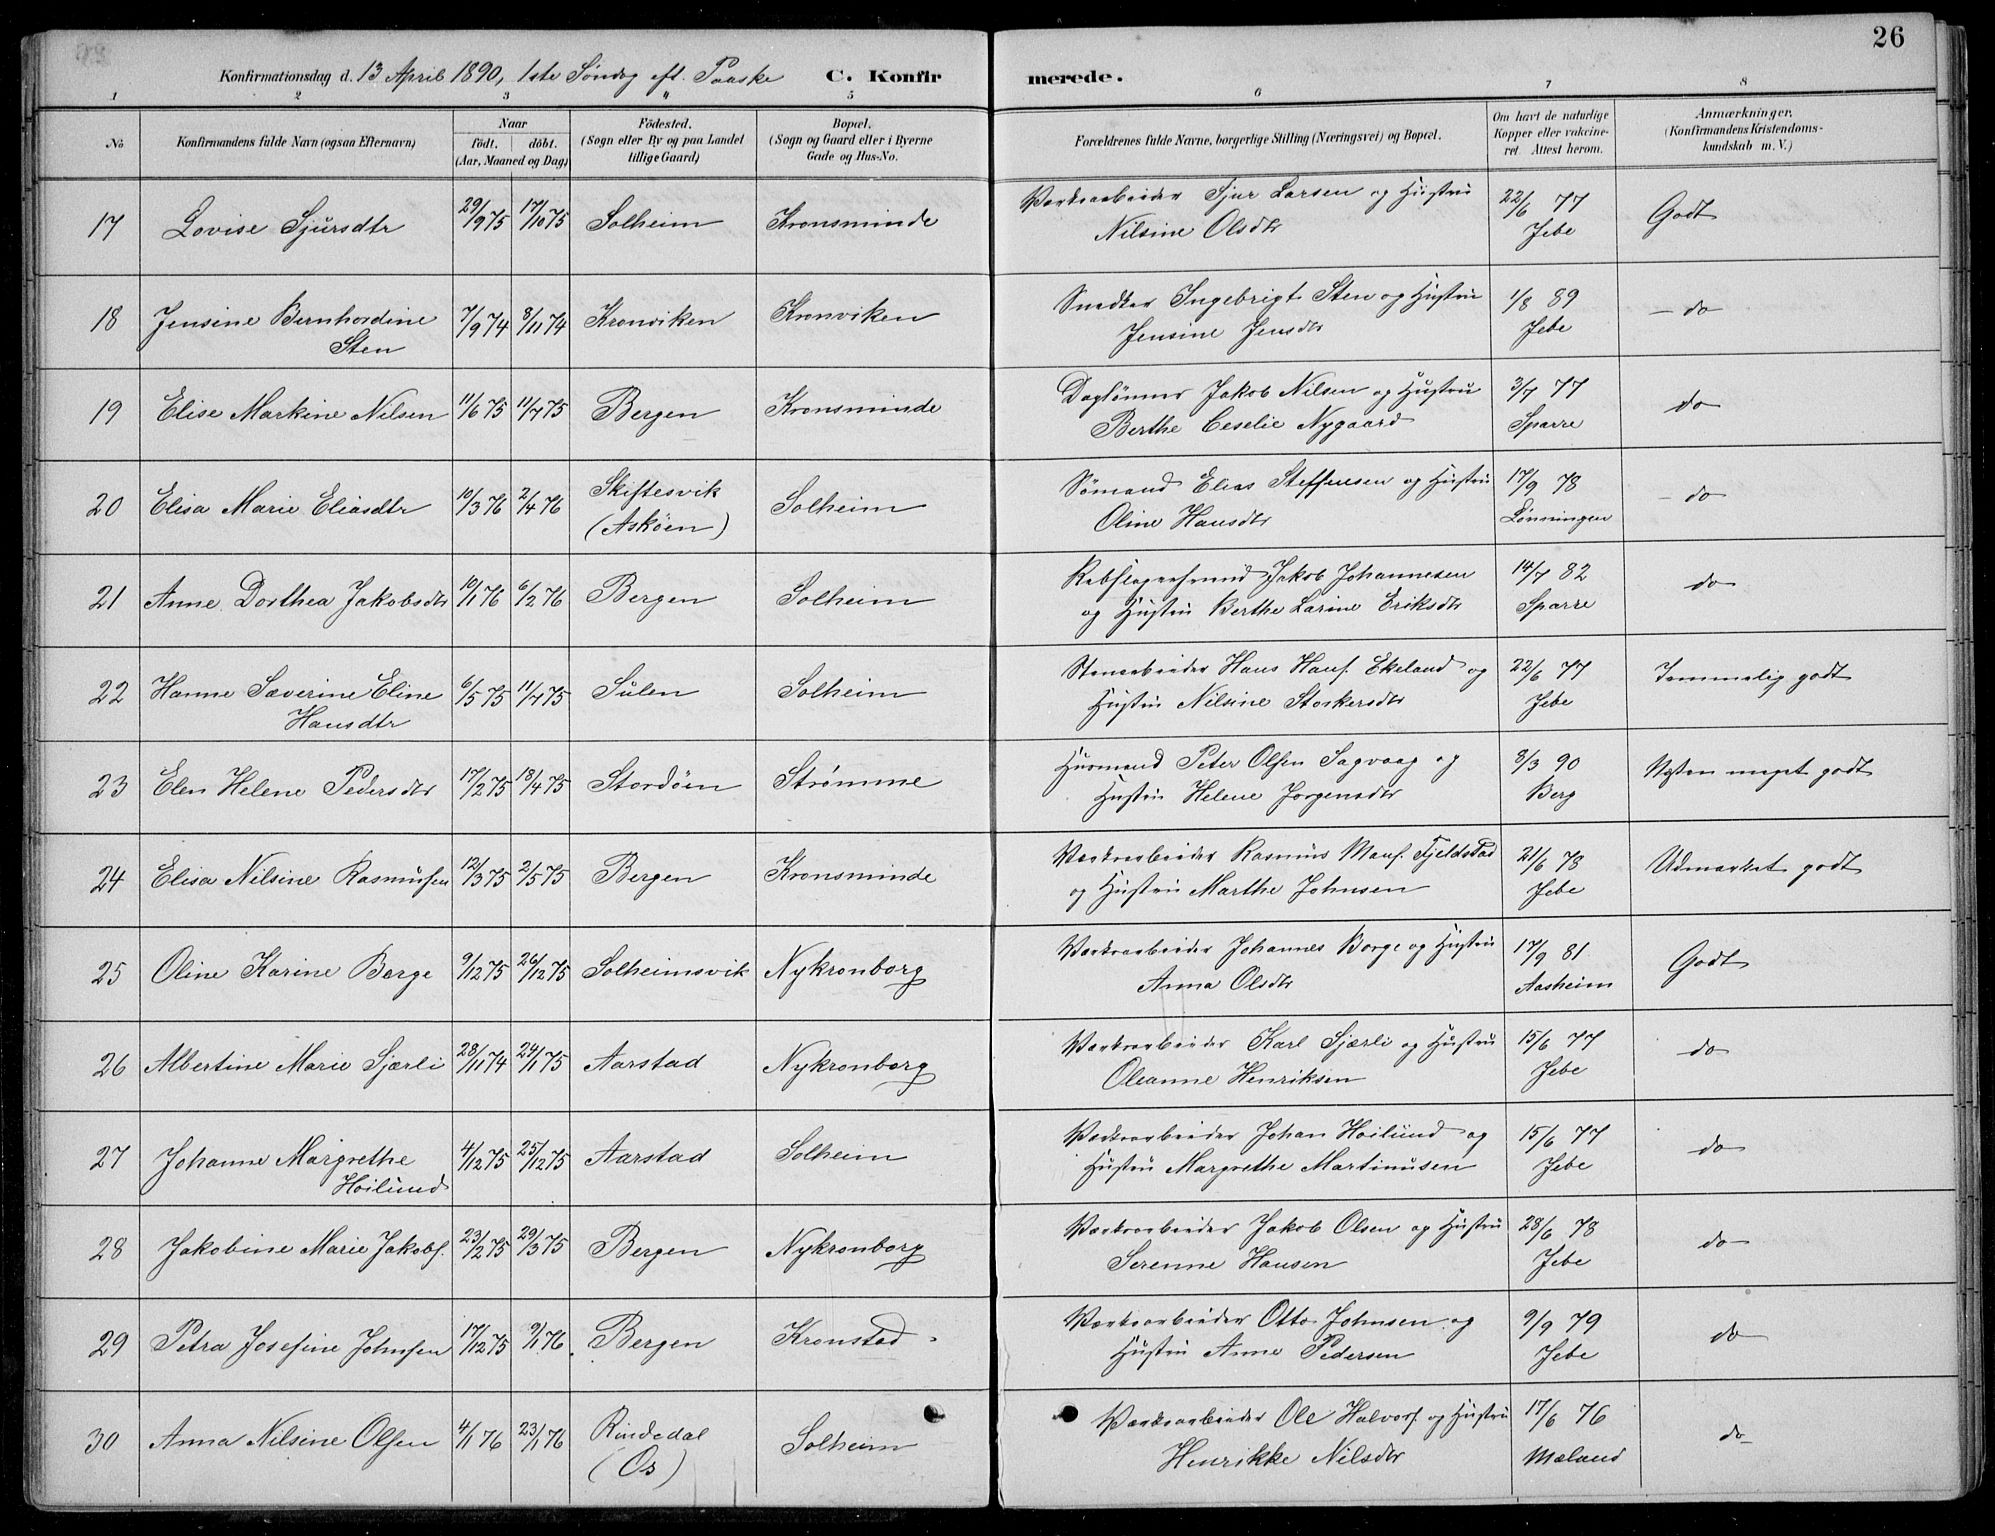 26
Konfirmationsdag d. 13 April 1890, 1ste Søndag eft. Paaske C. Konfirmerede.
1 2 3 4 5 6 7 8
No Konfirmandens fulde Navn (ogsaa Efternavn) Naar født. døbt. (Aar, Maaned og Dag) Fødested. (Sogn eller By og paa Landet tillige Gaard) Bopæl. (Sogn og Gaard eller i Byerne Gade og Hus-No. Forældrenes fulde Navne, borgerlige Stilling (Næringsvei) og Bopæl. Om havt de naturlige Kopper eller vakcineret. Attest herom. Anmærkninger. (Konfirmandens Kristendomskundskab m. V.)
17 Lovise Sjursdtr 29/9 75 17/10 75 Solheim Kronsminde Værksarbeider Sjur Larsen og Hustru 22/6 77 Godt
Nilsine Olsdtr Jebe
18 Jensine Bernhardine 7/9 74 8/11 74 Kronviken Kronviken Snedker Ingebrigt Sten og Hustru 1/8 89 do
Sten Jensine Jensdtr Jebe
19 Elise Markine Nilsen 11/6 75 11/7 75 Bergen Kronsminde Daglønner Jakob Nilsen og Hustru 3/7 77 do
Berthe Ceselie Nygaard Sparre
20 Elisa Marie Eliasdtr 10/3 76 2/4 76 Skiftesvik Solheim Sømand Elias Steffensen og Hustru 17/9 78 do
(Askøen) Oline Hansdtr Lønningen
21 Anne Dorthea Jakobsdtr 10/1 76 6/2 76 Bergen Solheim Rebslagersvend Jakob Johannesen 14/7 82 do
og Hustru Berthe Larine Eriksdtr Sparre
22 Hanne Severine Eline 6/5 75 11/7 75 Sulen Solheim Stenarbeider Hans Hans. Ekeland og 22/6 77 Temmelig godt
Hansdtr Hustru Nilsine Storkersdtr Jebe
23 Elen Helene Pedersdtr 17/2 75 18/4 75 Stordøen Strømme Husmand Peter Olsen Sagvaag og 8/3 90 Næsten meget godt
Hustru Helene Jørgensdtr Berg
24 Elisa Nilsine Rasmussen 12/3 75 2/5 75 Bergen Kronsminde Værksarbeider Rasmus Mons. Fjeldstad 21/6 78 Udmærket godt
og Hustru Marthe Johnsen Jebe
25 Oline Karine Borge 9/12 75 26/12 75 Solheimsvik Nykronborg Værksarbeider Johannes Borge og Hustru 17/9 81 Godt
Anna Olsdtr Aasheim
26 Albertine Marie Sjærli 28/11 74 24/1 75 Aarstad Nykronborg Værksarbeider Karl Sjærli og Hustru 15/6 77 do
Oleanne Henriksen Jebe
27 Johanne Margrethe 4/12 75 25/12 75 Aarstad Solheim Værksarbeider Johan Høilund og 15/6 77 do
Høilund Hustru Margrethe Martinusen Jebe
28 Jakobine Marie Jakobs. 23/2 75 29/3 75 Bergen Nykronborg Værksarbeider Jakob Olsen og Hustru 28/6 78 do
Serenne Hansen Jebe
29 Petra Josefine Johnsen 17/12 75 9/1 76 Bergen Kronstad Værksarbeider Otto Johnsen og 9/9 79 do
Hustru Anne Pedersen Jebe
30 Anna Nilsine Olsen 4/1 76 23/1 76 Rindedal Solheim Værksarbeider Ole Halvors. og Hustru 17/6 76 do
(Os) Henrikke Nilsdtr Mæland